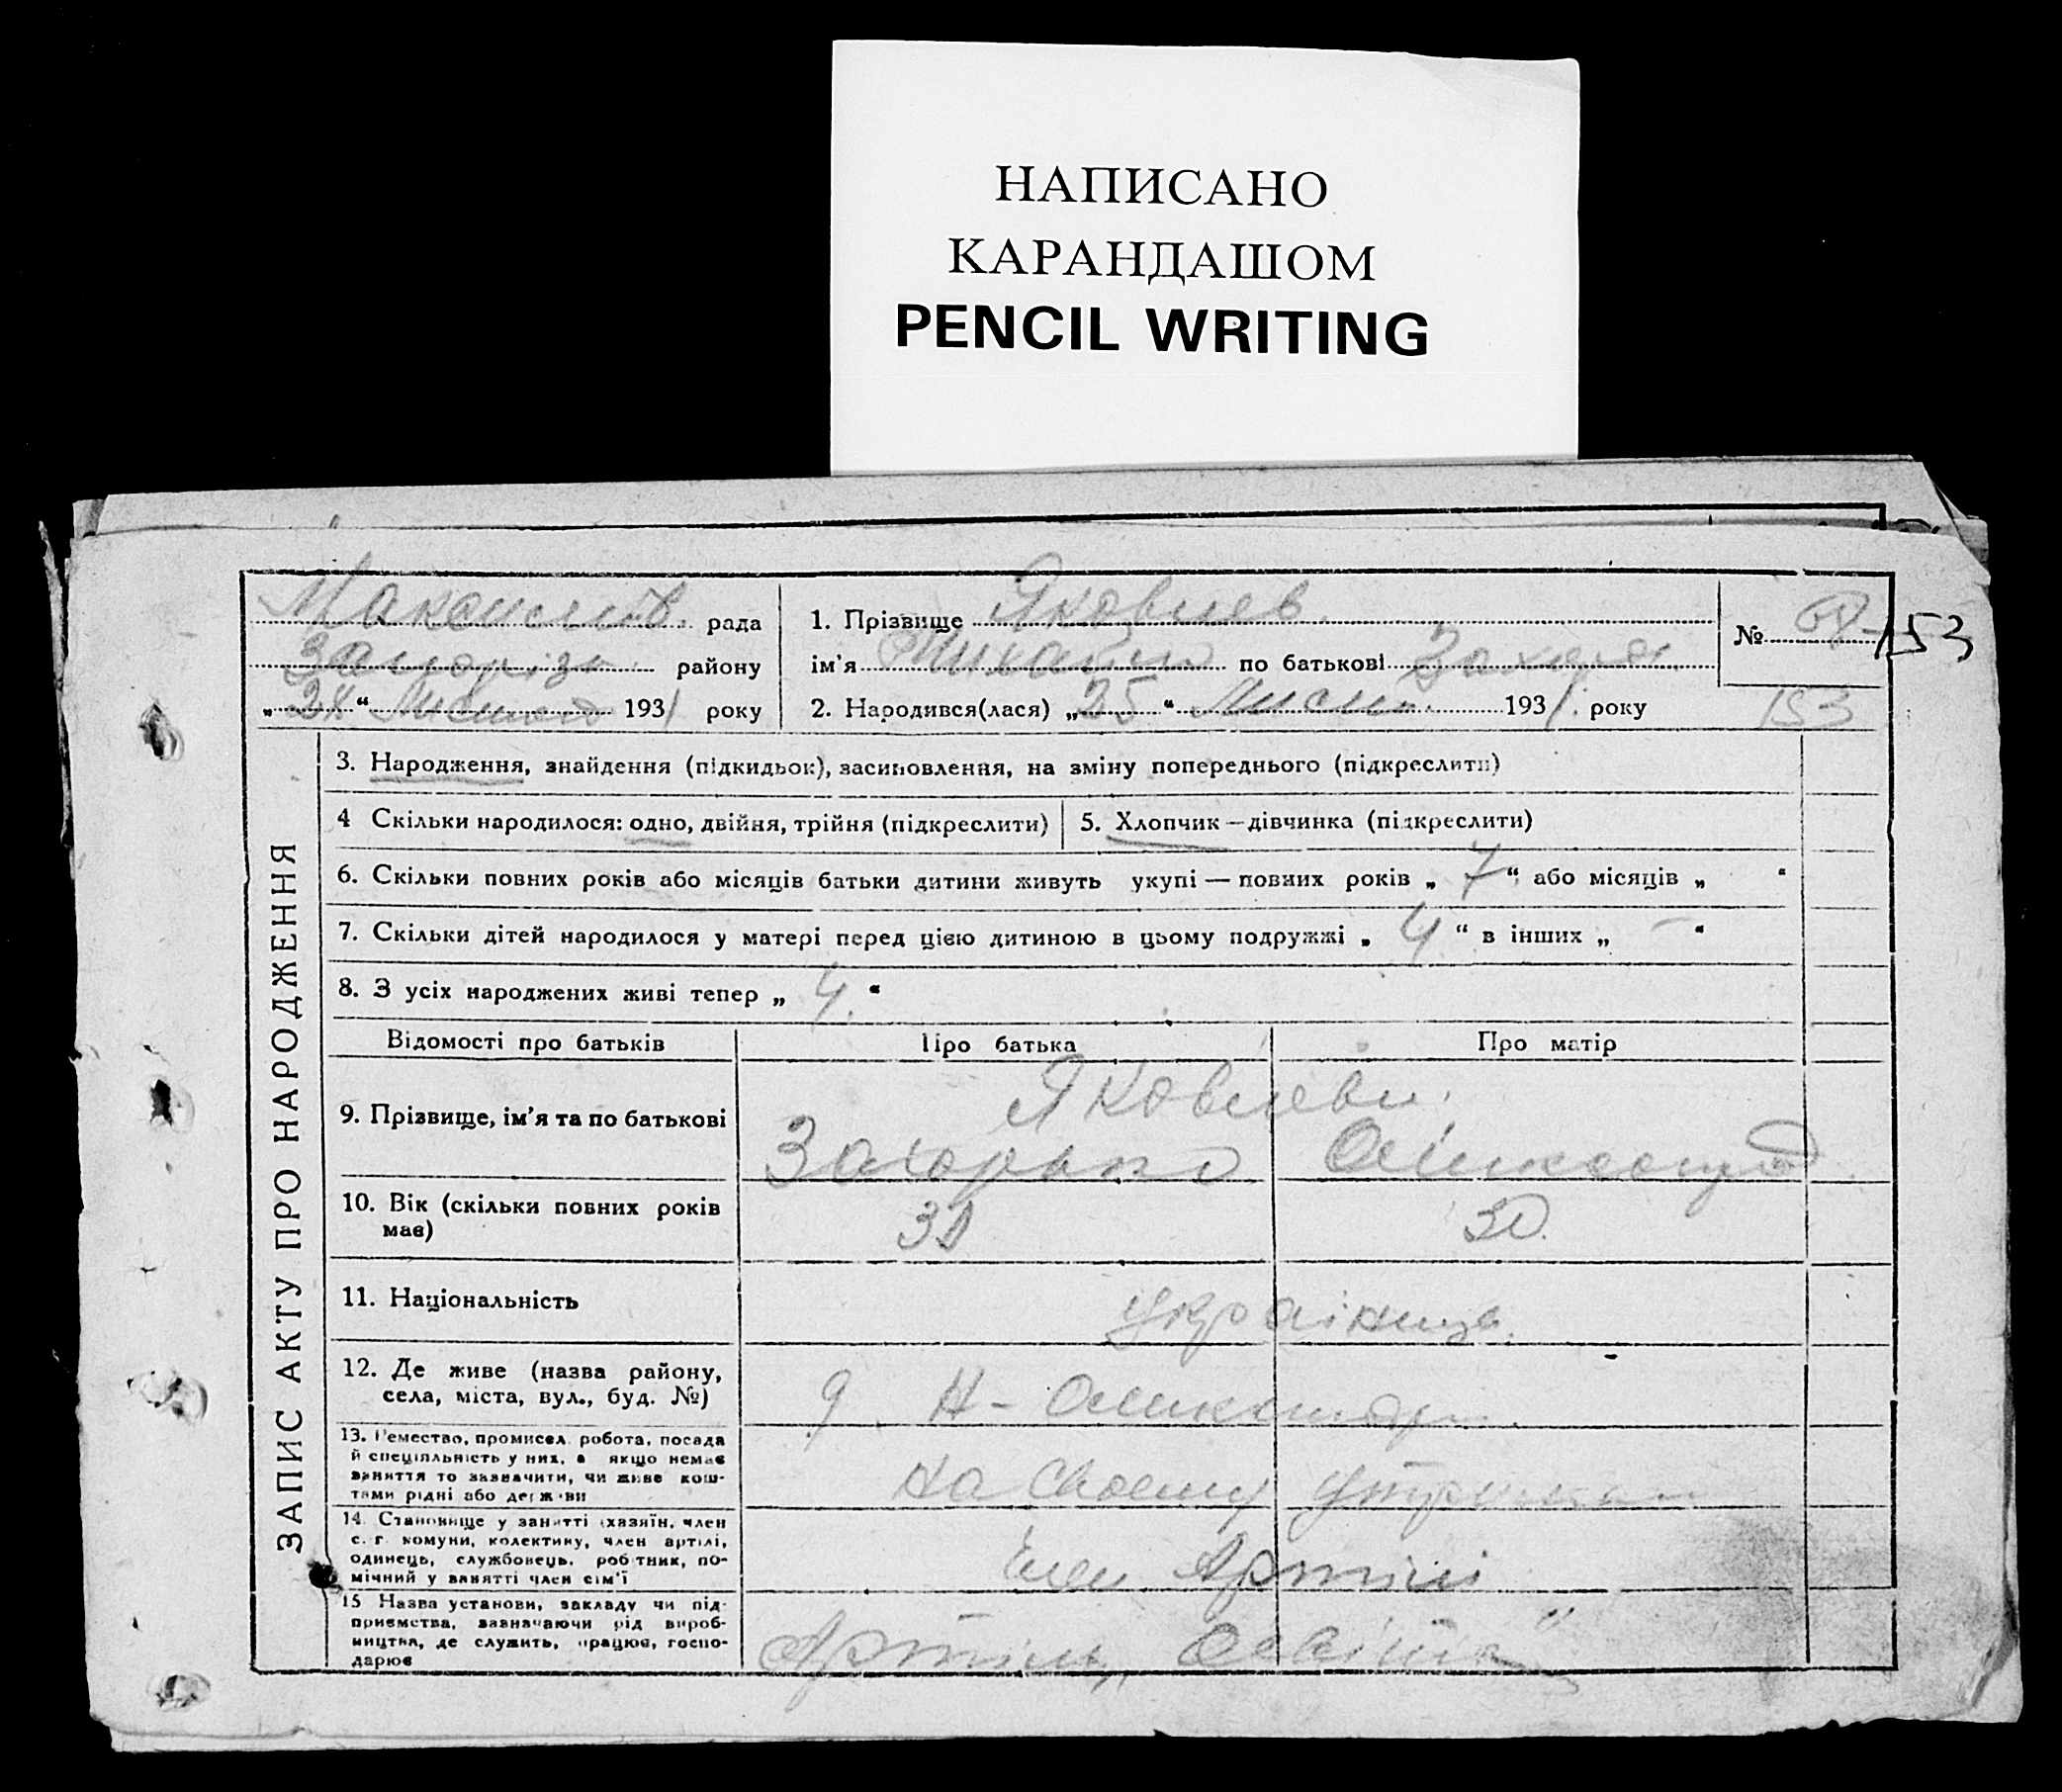 НАПИСАНО
КАРАНДАШОМ
PENCIL WRITING
рада
Запоріз. району
„28“ Листопад 1931 року
1. Прізвище Яковлев.
ім'я Михайло по батькові Захаров.
2. Народився(лася) „25“ Лист. 1931. року
№ 153
153
ЗАПИС АКТУ ПРО НАРОДЖЕННЯ
3. Народження, знайдення (підкидьок), засиновлення, на зміну попереднього (підкреслити)
4 Скільки народилося: одно, двійня, трійня (підкреслити)
5. Хлопчик — дівчинка (підкреслити)
6. Скільки повних років або місяців батьки дитини живуть укупі — повних років „ 7 “ або місяців „ “
7. Скільки дітей народилося у матері перед цією дитиною в цьому подружжі „ 4 “ в інших „ — “
8. З усіх народжених живі тепер „ 4. “
Відомості про батьків
Про батька
Про матір
9. Прізвище, ім'я та по батькові
Яковлеви.
10. Вік (скільки повних років
має)
30.
11. Національність
українці.
12. Де живе (назва району,
села, міста, вул., буд. №)
Н-
13. Ремество, промисел, робота, посада
й спеціяльність у них, а якщо немає
заняття то зазначити, чи живе кош-
тами рідні або держави
на своему утриман
14. Становище у занятті (хазяїн, член
с. г. комуни, колективу, член артілі,
одинець, службовець, робітник, по-
мічний у занятті член сім'ї
Член Артілі
15 Назва установи, закладу чи під-
приємства, зазначаючи рід вироб-
ництва, де служить, працює, госпо-
дарює
Артіль „